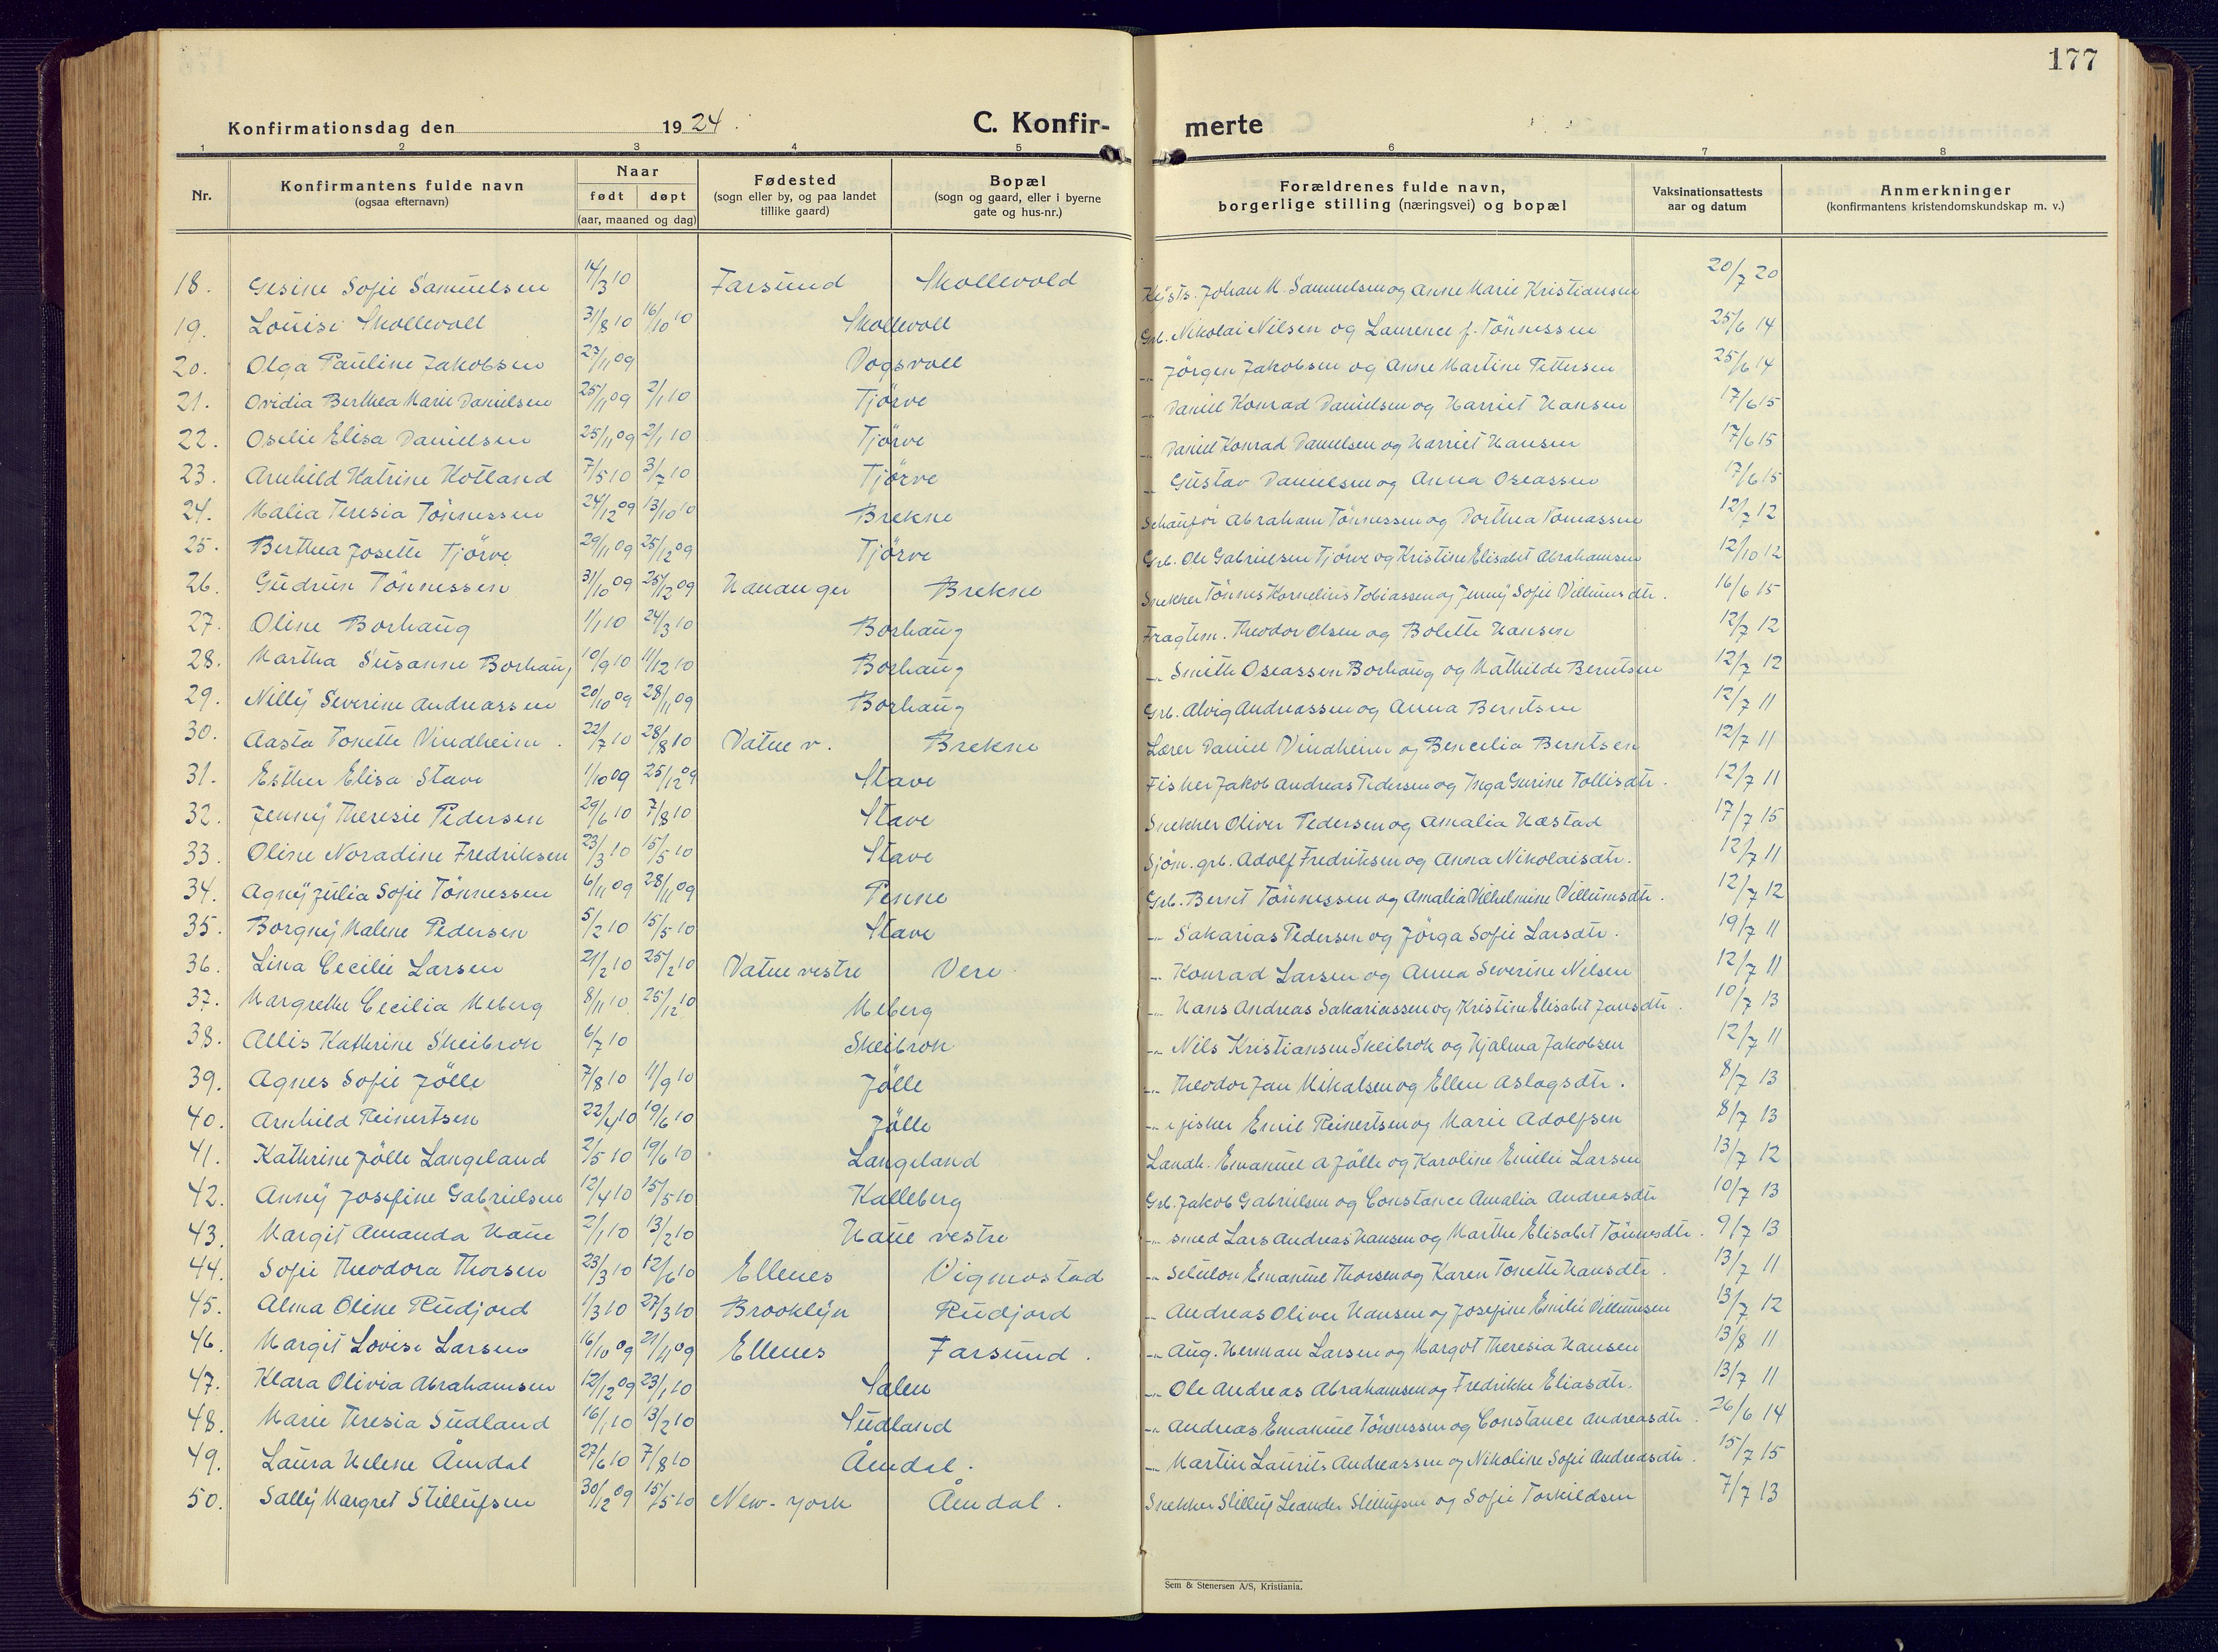 177
Konfirmationsdag den 1924.
C. Konfir-
merte
1 2 3 4 5 6 7 8
Nr.
Konfirmantens fulde navn
(ogsaa efternavn)
Naar
født døpt
(aar, maaned og dag)
Fødested
(sogn eller by, og paa landet
tillike gaard)
Bopæl
(sogn og gaard, eller i byerne
gate og hus-nr.)
Forældrenes fulde navn,
borgerlige stilling (næringsvei) og bopæl
Vaksinationsattests
aar og datum
Anmerkninger
(konfirmantens kristendomskundskap m. v.)
18. Gesine Sofie Samuelsen 14/3 10 Farsund Skollevold Johan M. Samuelsen og Anne Marie Kristiansen 20/7 20
19. Louise Skollevoll 31/8 10 16/10 10 Skollevoll Grb. Nikolai Nilsen og Laurence f. Tönnessen 25/6 14
20. Olga Pauline Jakobsen 27/11 09 Vogsvoll -"- Jörgen Jakobsen og Anne Martine Pettersen 25/6 14
21. Ovidia Berthea Marie Danielsen 25/11 09 2/1 10 Tjörve -"- Daniel Konrad Danielsen og Harriet Hansen 17/6 15
22. Oselie Elisa Danielsen 25/11 09 2/1 10 Tjörve -"- Daniel Konrad Danielsen og Harriet Hansen 17/6 15
23. Arnhild Katrine Kotland 7/5 10 3/7 10 Tjörve -"- Gustav Danielsen og Anna Oseassen 17/6 15
24. Malia Teresia Tönnessen 24/12 09 13/10 10 Brekne Schauför Abraham Tönnessen og Dorthea Tomassen 12/7 12
25. Berthea Josette Tjörve 29/11 09 25/12 09 Tjörve Grb. Ole Gabrielsen Tjörve og Kristine Elisabet Abrahamsen 12/10 12
26. Gudrun Tönnessen 31/10 09 25/12 09 Hananger Brekne Snekker Tönnes Kornelius Tobiassen og Jenny Sofie Villumsdtr. 16/6 15
27. Oline Borhaug 1/1 10 24/3 10 Borhaug Fragtem. Theodor Olsen og Bolette Hansen 12/7 12
28. Martha Susanne Borhaug 10/9 10 11/12 10 Borhaug -"- Smith Oseassen Borhaug og Mathilde Berntsen 12/7 12
29. Nilly Severine Andreassen 20/10 09 28/11 09 Borhaug Grb. Alvig Andreassen og Anna Berntsen 12/7 11
30. Aasta Tonette Vindheim. 22/7 10 28/8 10 Vatne v. Brekne Lærer Daniel Vindheim og Bencelia Berntsen 12/7 11
31. Esther Elisa Stave 1/10 09 25/12 09 Stave Fisker Jakob Andreas Pedersen og Inga Gurine Tollisdtr. 12/7 11
32. Jenny Theresie Pedersen 29/6 10 7/8 10 Stave Snekker Oliver Pedersen og Amalia Hæstad 17/7 15
33. Oline Noradine Fredriksen 23/3 10 15/5 10 Stave Sjöm. grb. Adolf Fredriksen og Anna Nikolaisdtr. 12/7 11
34. Agny Julia Sofie Tönnessen 6/11 09 28/11 09 Penne Grb. Bernt Tönnessen og Amalia Vilhelmine Villumsdtr. 12/7 12
35. Borgny Malene Pedersen 5/2 10 15/5 10 Stave -"- Sakarias Pedersen og Jörga Sofie Larsdtr. 19/7 11
36. Lina Cecilie Larsen 21/2 10 25/2 10 Vatne vestre Vere -"- Konrad Larsen og Anna Severine Nilsen 12/7 11
37. Margrethe Cecilia Meberg 8/11 10 25/12 10 Meberg -"- Hans Andreas Sakariassen og Kristine Elisabet Jansdtr. 10/7 13
38. Allis Kathrine Skeibrok 6/7 10 Skeibrok -"- Nils Kristiansen Skeibrok og Hjalma Jakobsen 12/7 11
39. Agnes Sofie Jölle 7/8 10 11/9 10 Jölle -"- Theodor Jan Mikalsen og Ellen Aslagsdtr. 8/7 13
40. Arnhild Reinertsen 22/4 10 19/6 10 Jölle -"- fisker Emil Reinertsen og Marie Adolfsen 8/7 13
41. Kathrine Jölle Langeland 2/5 10 19/6 10 Langeland Landh. Emanuel A Jölle og Karoline Emilie Larsen 13/7 12
42. Anny Josefine Gabrielsen 12/4 10 15/5 10 Kalleberg Grb. Jakob Gabrielsen og Constance Amalia Andreasdtr 10/7 13
43. Margit Amanda Haue 2/1 10 13/2 10 Haue vestre -"- smed Lars Andreas Hansen og Marthe Elisabet Tönnesdtr. 9/7 13
44. Sofie Theodora Thorsen 23/3 10 12/6 10 Ellenes Vigmostad -"- Selulon Emanuel Thorsen og Karen Tonette Hansdtr. 13/7 11
45. Alma Oline Rudjord 1/3 10 27/3 10 Brooklyn Rudjord -"- Andreas Oliver Hansen og Josefine Emilie Villumsen 13/7 12
46. Margit Lovise Larsen 16/10 09 21/11 09 Ellenes Farsund. -"- Aug. Herman Larsen og Margot Theresia Hansen 13/8 11
47. Klara Olivia Abrahamsen 12/12 09 23/1 10 Salen -"- Ole Andreas Abrahamsen og Fredrikke Eliasdtr. 13/7 11
48. Marie Teresia Sudland 16/1 10 13/2 10 Sudland -"- Andreas Emanuel Tönnessen og Constance Andreasdtr. 26/6 14
49. Laura Helene Åmdal 27/6 10 7/8 10 Åmdal. -"- Martin Laurits Andreassen og Nikoline Sofie Andreasdtr. 15/7 15
50. Sally Margret Stillufsen 30/12 09 15/5 10 New-York Åmdal. Snekker Stilluf Leander Stillufsen og Sofie Torkildsen 7/7 13
Sem & Stenersen A/S, Kristiania.